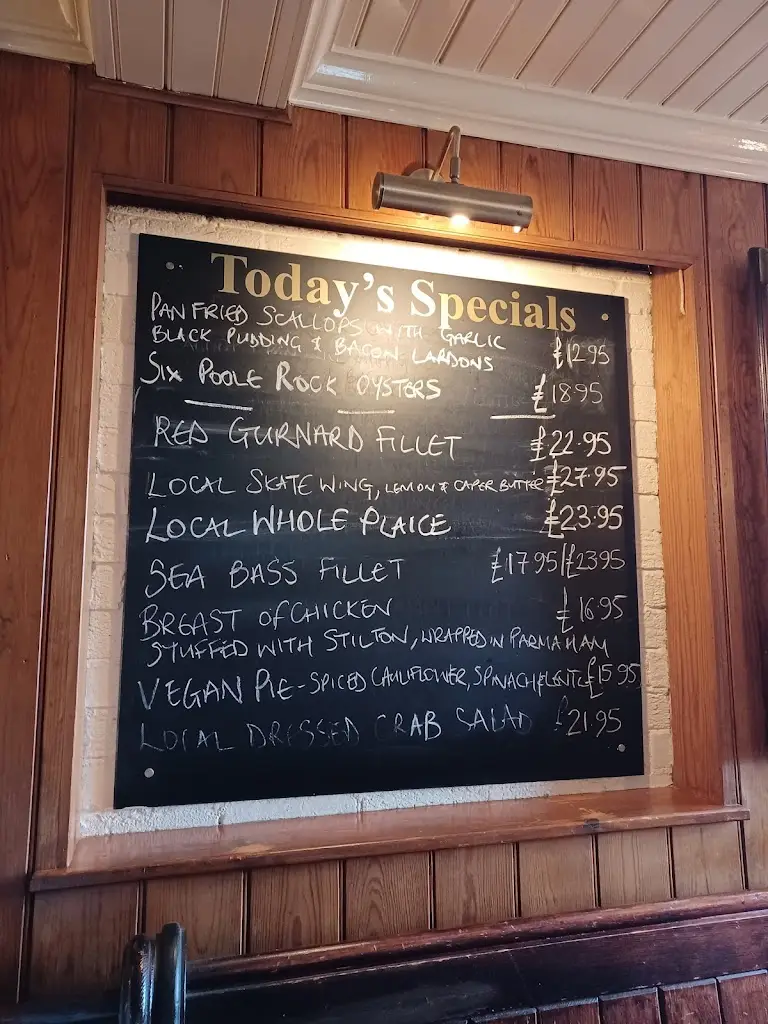 Today's Specials
PAN FRIED SCALLOPS WITH GARLIC
BLACK PUDDING & BACON LARDONS £12.95
SIX POOLE ROCK OYSTERS £18.95
RED GURNARD FILLET £22.95
LOCAL SKATE WING, LEMON & CAPER BUTTER £27.95
LOCAL WHOLE PLAICE £23.95
SEA BASS FILLET £17.95/£23.95
BREAST OF CHICKEN £16.95
STUFFED WITH STILTON, WRAPPED IN PARMA HAM
VEGAN PIE - SPICED CAULIFLOWER, SPINACH & LENTIL £15.95
LOCAL DRESSED CRAB SALAD £21.95